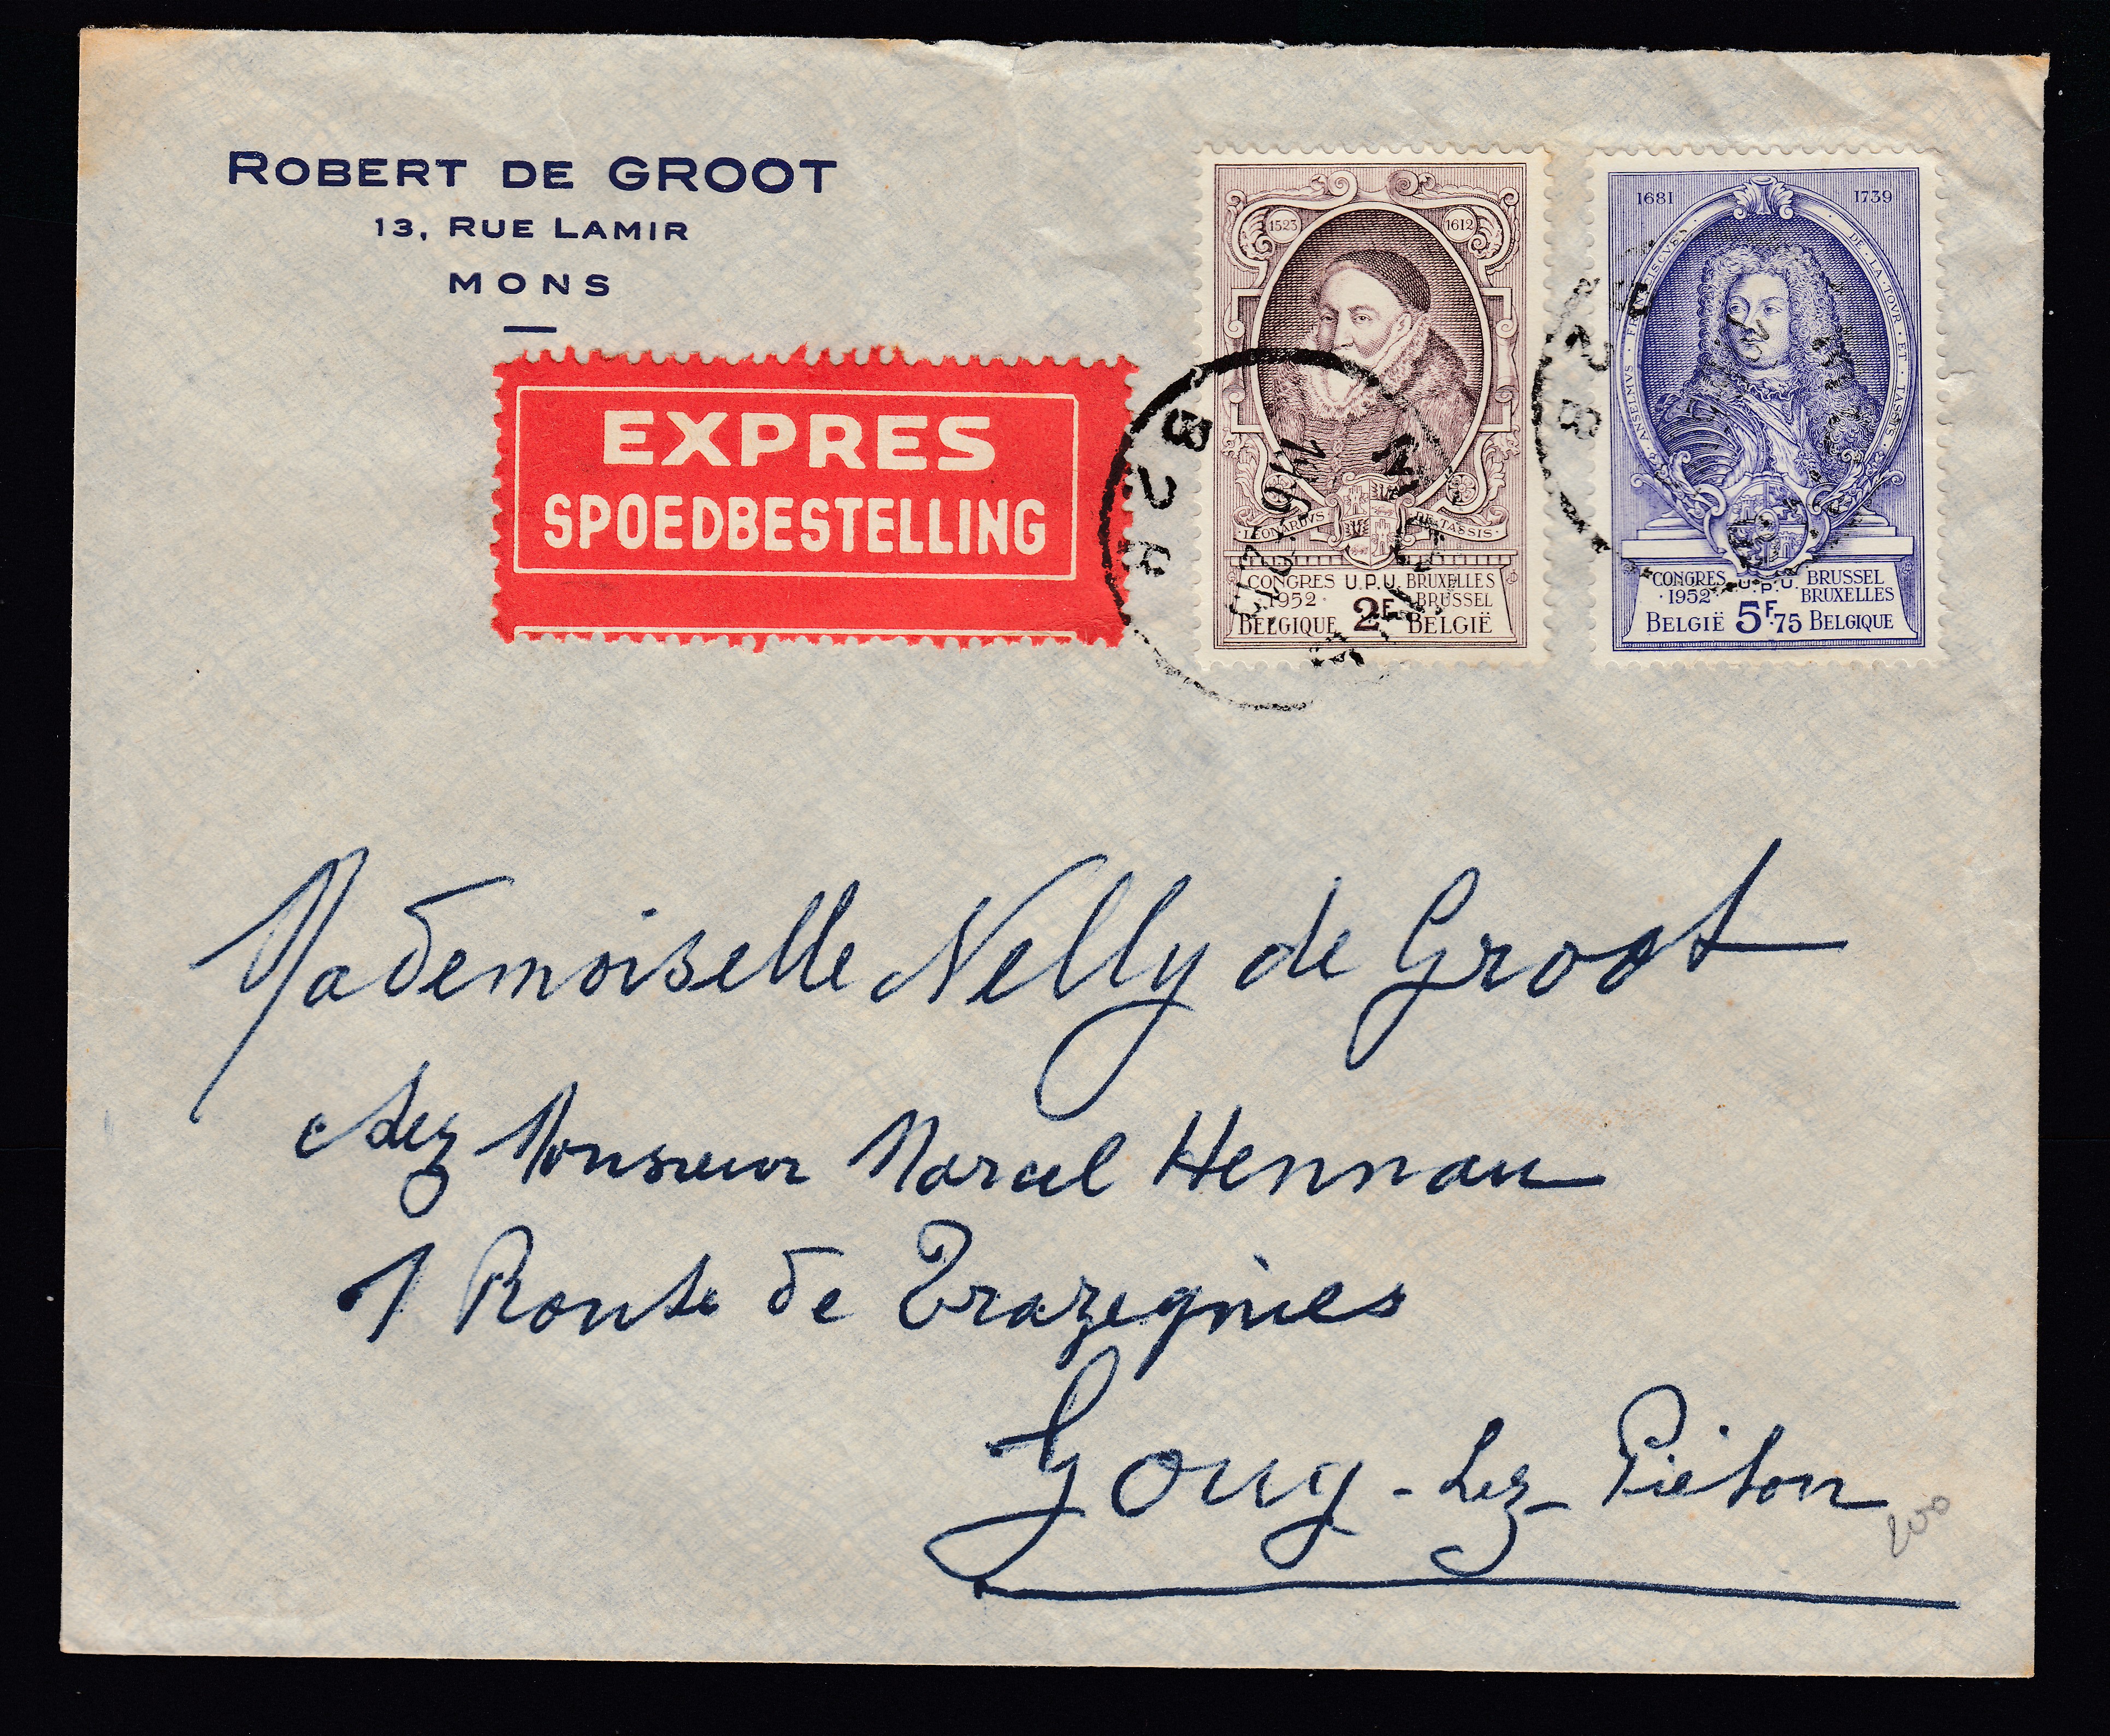 ROBERT DE GROOT
13, RUE LAMIR
MONS
EXPRES
SPOEDBESTELLING
1523 1612
LEONARDVS DE TASSIS
CONGRES U.P.U. BRUXELLES
1952 BRUSSEL
BELGIQUE 2F BELGIË
1681 1739
ANSELMVS · FRANCISCVS · DE · LA · TOVR · ET · TASSIS
CONGRES U.P.U. BRUSSEL
1952 BRUXELLES
BELGIË 5F.75 BELGIQUE
B 2 B
Mademoiselle Nelly de Groot
chez Monsieur Marcel Hennau
1 Route de Trazegnies
Gouy-Lez-Piéton
200